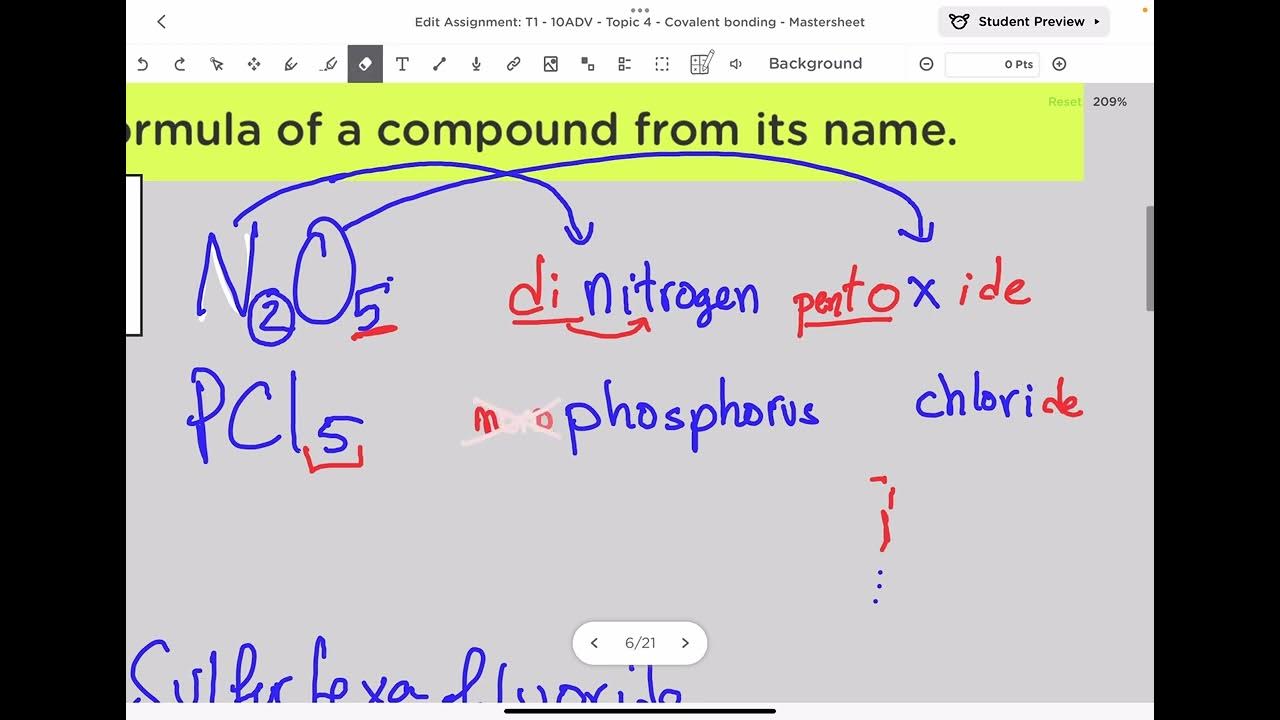 Edit Assignment: T1 - 10ADV - Topic 4 - Covalent bonding - Mastersheet
Student Preview
T
Background
0 Pts
Reset 209%
ormula of a compound from its name.
N2O5 dinitrogen pentoxide
PCl5 mono phosphorus chloride
6/21
Sulfur hexa fluoride